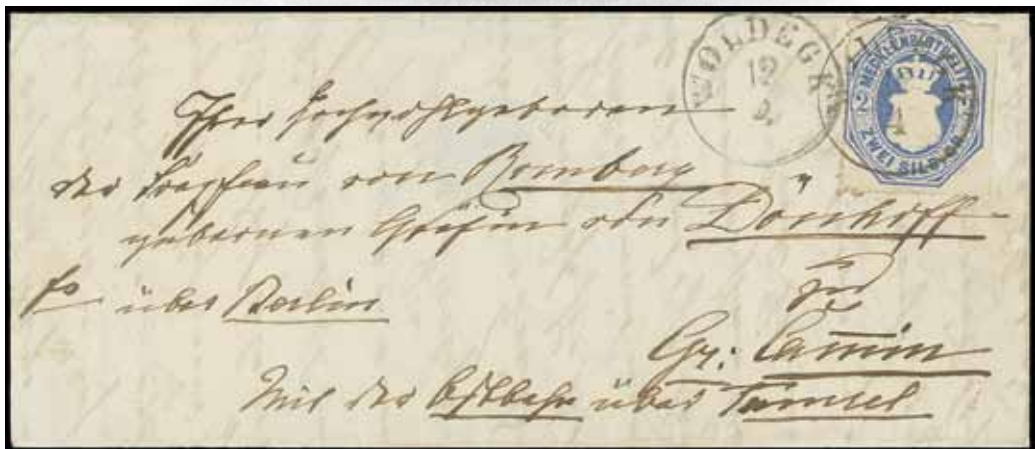 WOLDEGK
12
2.
MECKLENB. STRELITZ
ZWEI SILBGR.
2
Ihrer Hochwohlgeboren
der Frau von Romberg
gebornen Gräfin von Dönhoff
zu
fr über Berlin
Gr: Camin
Mit der Ostbahn über Tamsel